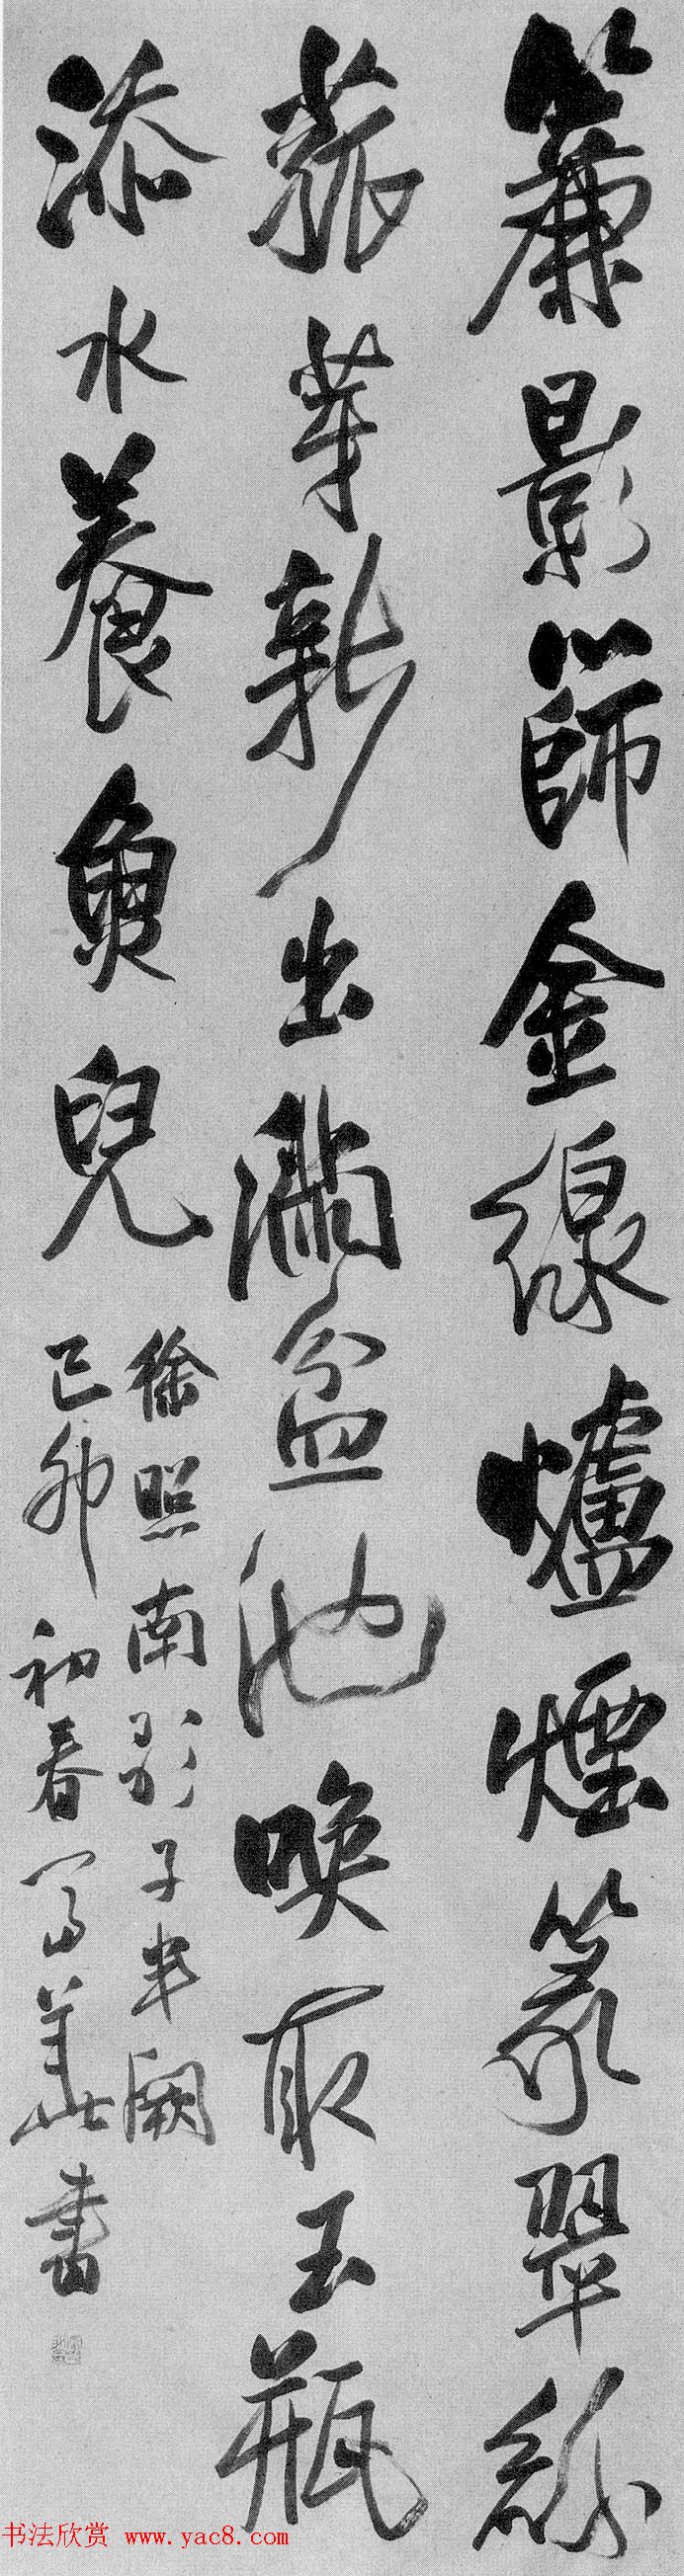 簾影篩金線爐煙篆翠絲
菰芽新出滿盆池喚取玉瓶
添水養魚兒
徐照南歌子半闋
己卯初春書
书法欣赏 www.yac8.com